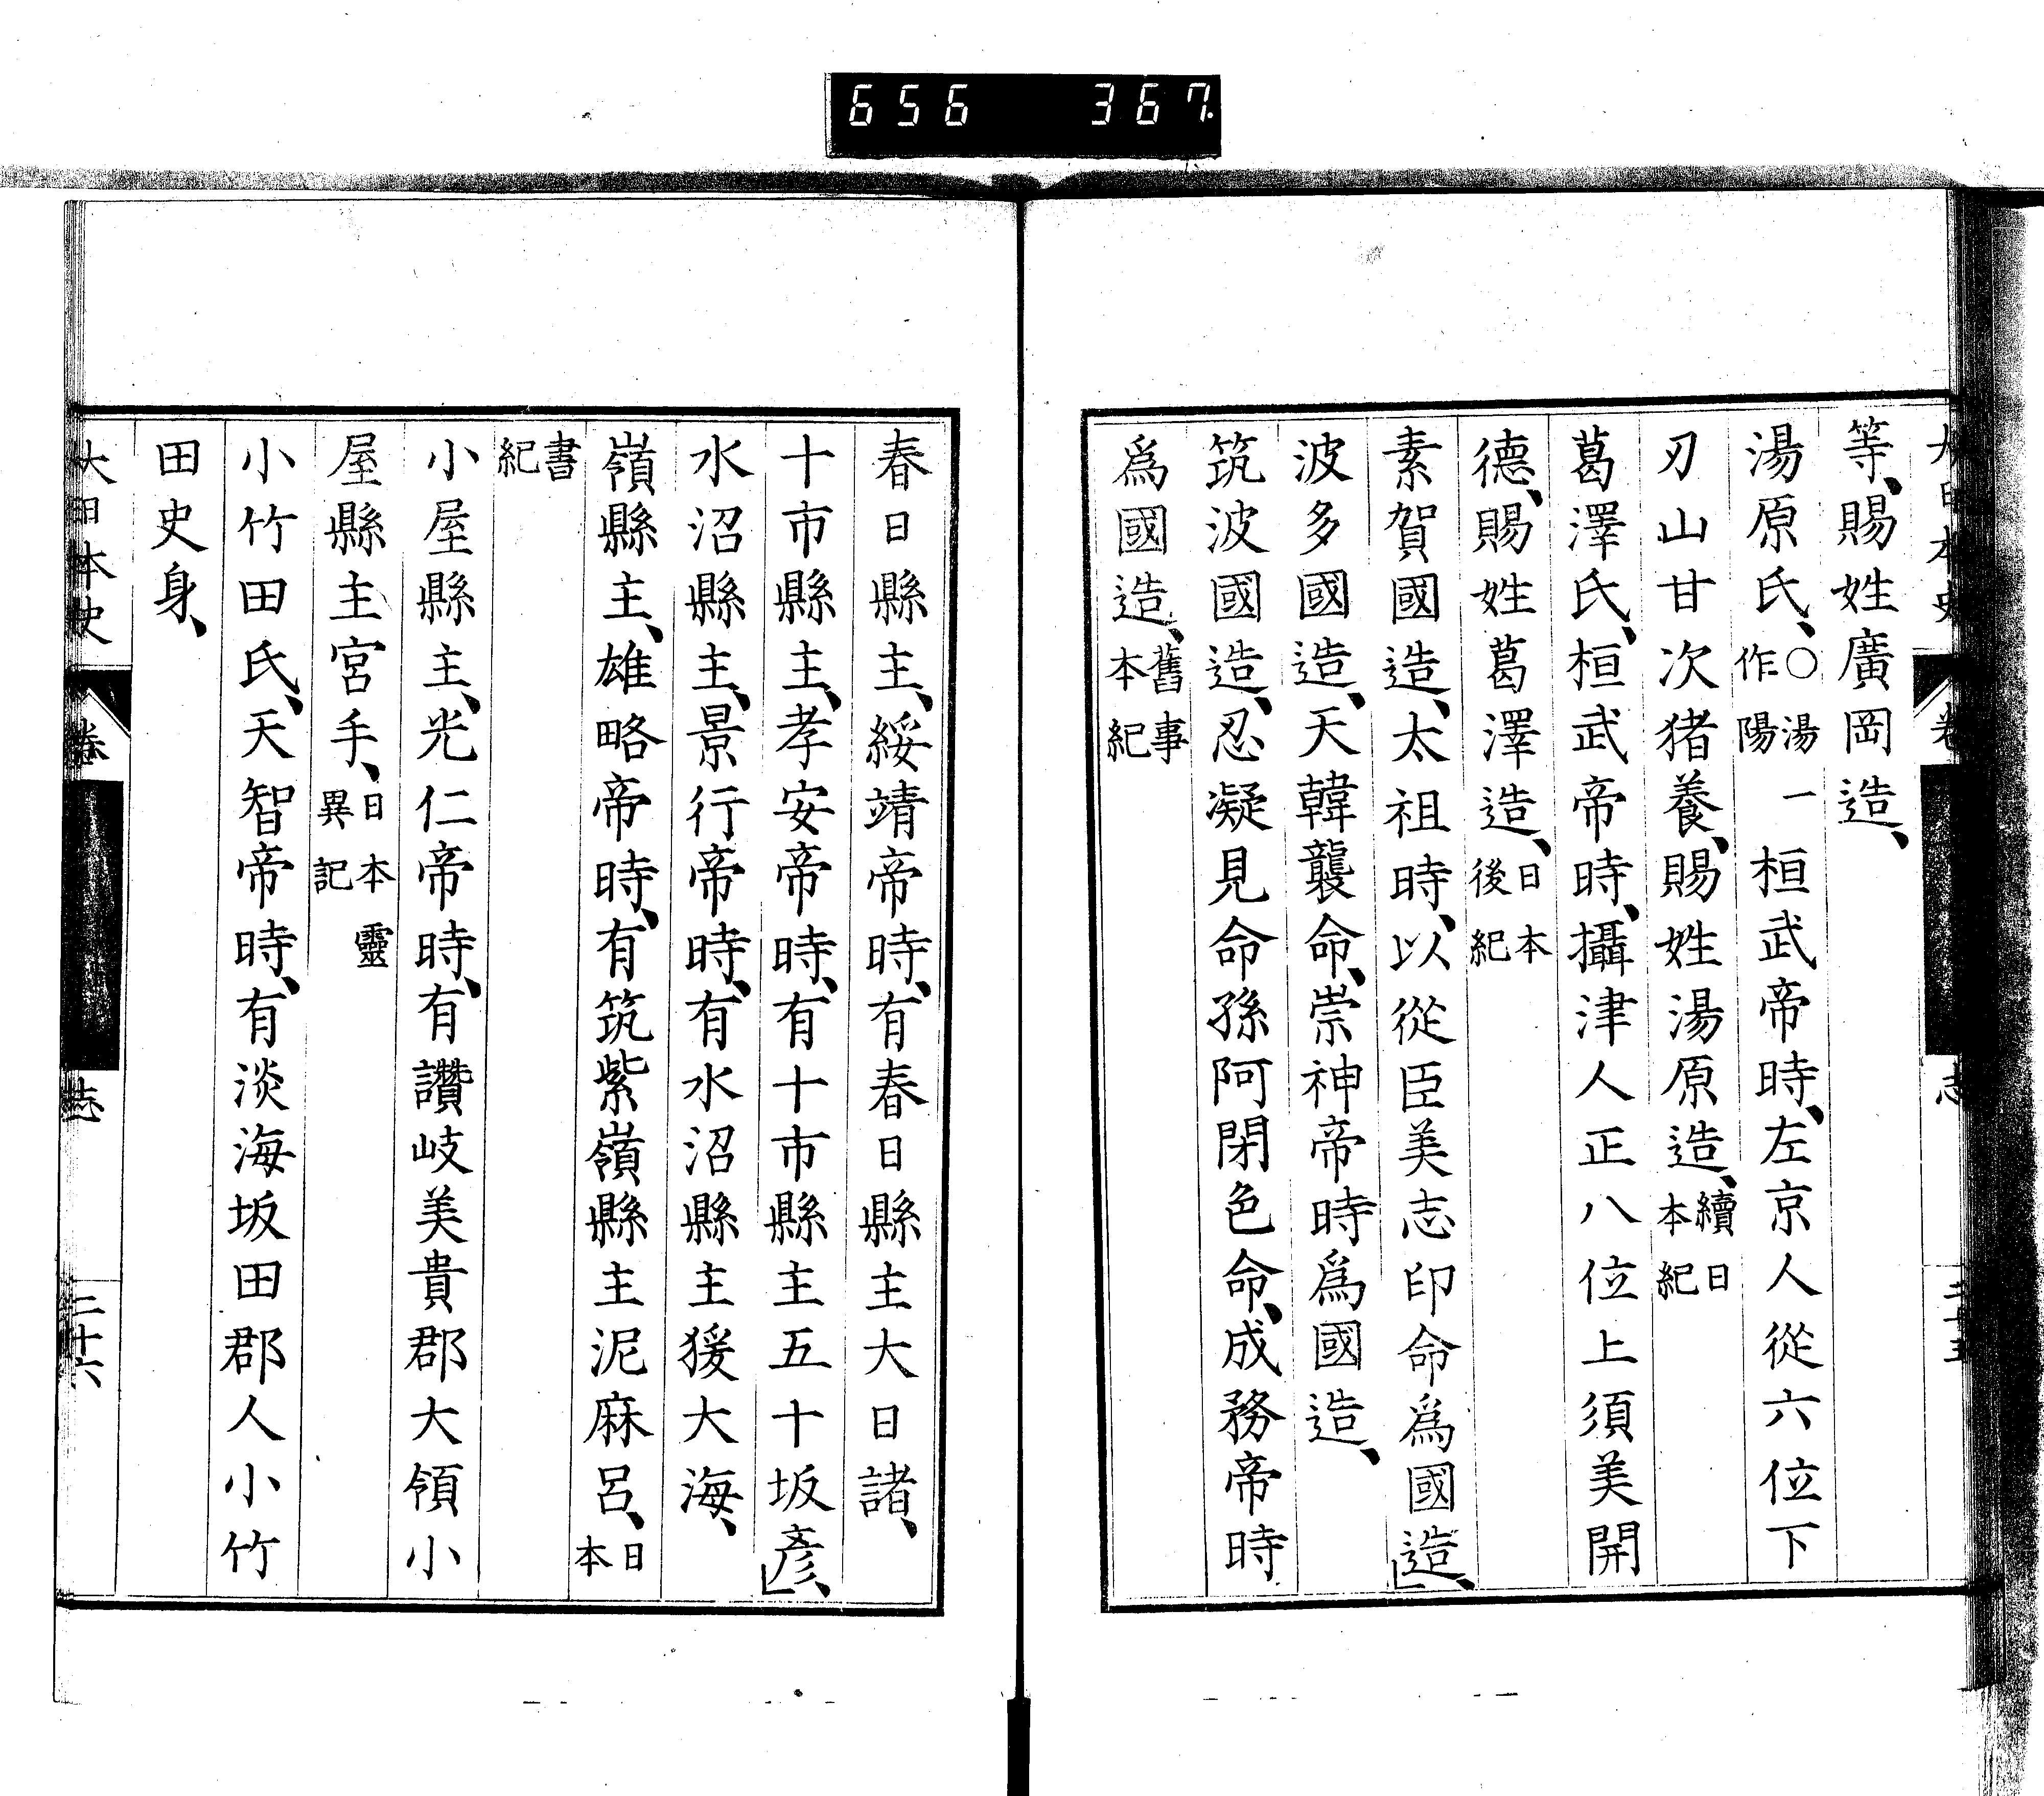 656 367
等、賜姓廣岡造、
湯原氏、○湯一作陽桓武帝時、左京人從六位下
刃山甘次猪養、賜姓湯原造、續日本紀
葛澤氏、桓武帝時、攝津人正八位上須美開
德、賜姓葛澤造、日本後紀
素賀國造、太祖時、以從臣美志印命爲國造、
波多國造、天韓襲命、崇神帝時爲國造、
筑波國造、忍凝見命孫阿閉色命、成務帝時
爲國造、舊事本紀
春日縣主、綏靖帝時、有春日縣主大日諸、
十市縣主、孝安帝時、有十市縣主五十坂彥、
水沼縣主、景行帝時、有水沼縣主猨大海、
嶺縣主、雄略帝時、有筑紫嶺縣主泥麻呂、日本
書紀
小屋縣主、光仁帝時、有讚岐美貴郡大領小
屋縣主宮手、日本靈異記
小竹田氏、天智帝時、有淡海坂田郡人小竹
田史身、
大日本史 卷 志 三十六